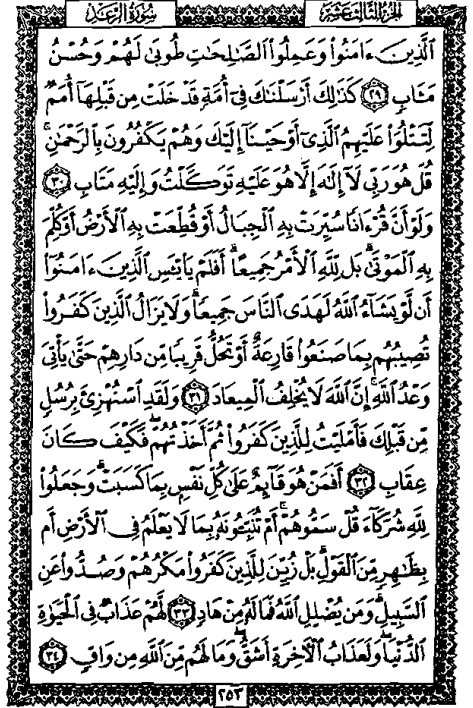 الجزء الثالث عشر سورة الرعد
الَّذِينَ ءَامَنُوا۟ وَعَمِلُوا۟ الصَّـٰلِحَـٰتِ طُوبَىٰ لَهُمْ وَحُسْنُ
مَـَٔابٍ ٢٩ كَذَٰلِكَ أَرْسَلْنَـٰكَ فِىٓ أُمَّةٍ قَدْ خَلَتْ مِن قَبْلِهَآ أُمَمٌ
لِّتَتْلُوَا۟ عَلَيْهِمُ الَّذِىٓ أَوْحَيْنَآ إِلَيْكَ وَهُمْ يَكْفُرُونَ بِالرَّحْمَـٰنِ ۚ
قُلْ هُوَ رَبِّى لَآ إِلَـٰهَ إِلَّا هُوَ عَلَيْهِ تَوَكَّلْتُ وَإِلَيْهِ مَتَابِ ٣٠
وَلَوْ أَنَّ قُرْءَانًا سُيِّرَتْ بِهِ الْجِبَالُ أَوْ قُطِّعَتْ بِهِ الْأَرْضُ أَوْ كُلِّمَ
بِهِ الْمَوْتَىٰ ۗ بَل لِّلَّهِ الْأَمْرُ جَمِيعًا ۗ أَفَلَمْ يَا۟يْـَٔسِ الَّذِينَ ءَامَنُوٓا۟
أَن لَّوْ يَشَآءُ اللَّهُ لَهَدَى النَّاسَ جَمِيعًا ۗ وَلَا يَزَالُ الَّذِينَ كَفَرُوا۟
تُصِيبُهُم بِمَا صَنَعُوا۟ قَارِعَةٌ أَوْ تَحُلُّ قَرِيبًا مِّن دَارِهِمْ حَتَّىٰ يَأْتِىَ
وَعْدُ اللَّهِ ۚ إِنَّ اللَّهَ لَا يُخْلِفُ الْمِيعَادَ ٣١ وَلَقَدِ اسْتُهْزِئَ بِرُسُلٍ
مِّن قَبْلِكَ فَأَمْلَيْتُ لِلَّذِينَ كَفَرُوا۟ ثُمَّ أَخَذْتُهُمْ ۖ فَكَيْفَ كَانَ
عِقَابِ ٣٢ أَفَمَنْ هُوَ قَآئِمٌ عَلَىٰ كُلِّ نَفْسٍۭ بِمَا كَسَبَتْ ۗ وَجَعَلُوا۟
لِلَّهِ شُرَكَآءَ قُلْ سَمُّوهُمْ ۚ أَمْ تُنَبِّـُٔونَهُۥ بِمَا لَا يَعْلَمُ فِى الْأَرْضِ أَم
بِظَـٰهِرٍ مِّنَ الْقَوْلِ ۗ بَلْ زُيِّنَ لِلَّذِينَ كَفَرُوا۟ مَكْرُهُمْ وَصُدُّوا۟ عَنِ
السَّبِيلِ ۗ وَمَن يُضْلِلِ اللَّهُ فَمَا لَهُۥ مِنْ هَادٍ ٣٣ لَّهُمْ عَذَابٌ فِى الْحَيَوٰةِ
الدُّنْيَا ۖ وَلَعَذَابُ الْـَٔاخِرَةِ أَشَقُّ ۖ وَمَا لَهُم مِّنَ اللَّهِ مِن وَاقٍ ٣٤
٢٥٣